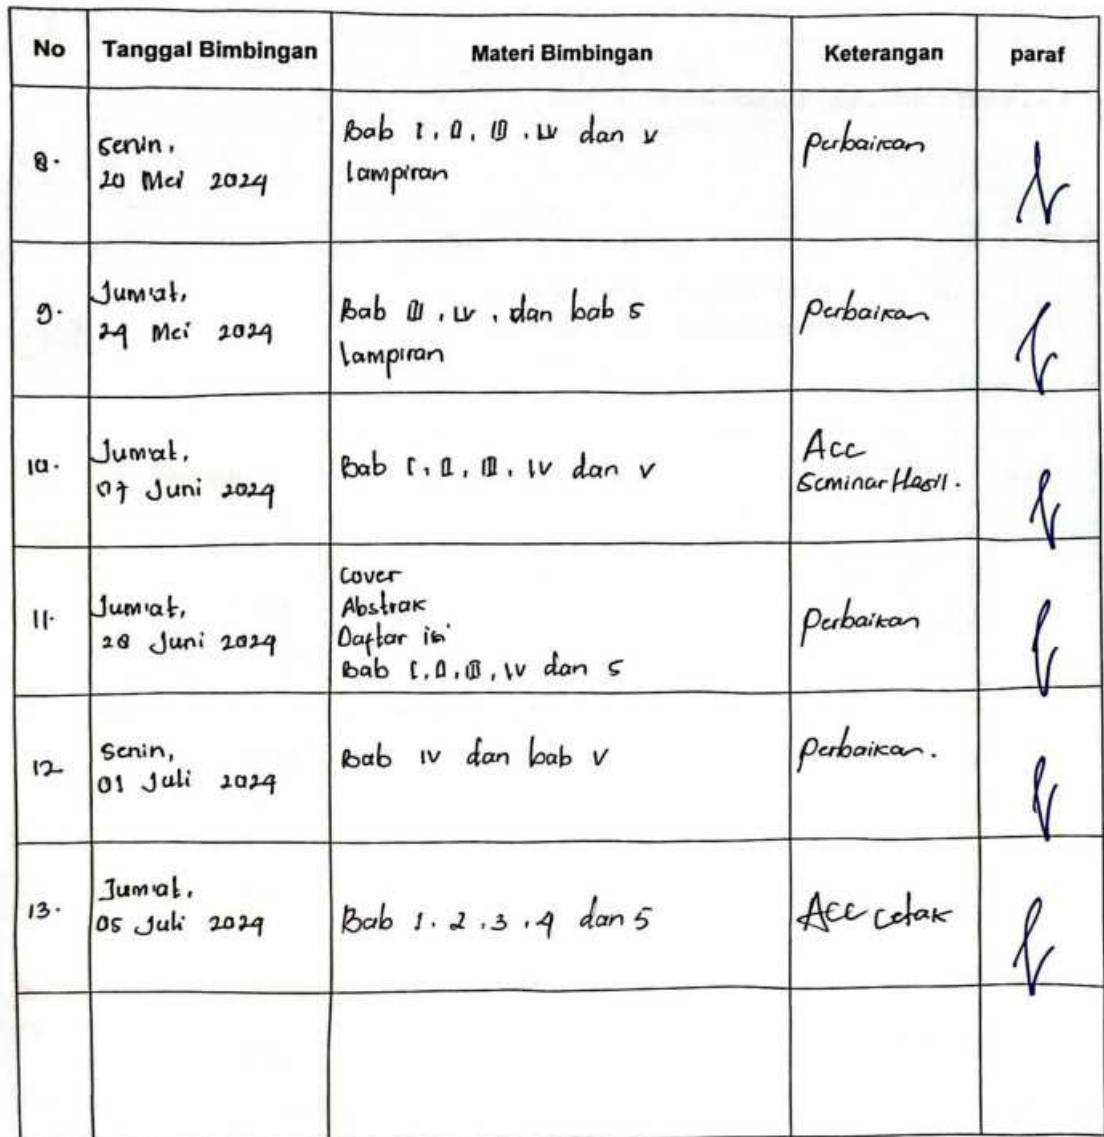 No Tanggal Bimbingan Materi Bimbingan Keterangan paraf
8. Senin, 20 Mei 2024
Bab I, II, III, IV dan V
Lampiran
Perbaikan
9. Jum'at, 24 Mei 2024
Bab III, IV, dan bab 5
Lampiran
Perbaikan
10. Jum'at, 07 Juni 2024
Bab I, II, III, IV dan V
Acc
Seminar Hasil.
11. Jum'at, 28 Juni 2024
Cover
Abstrak
Daftar isi
Bab I, II, III, IV dan 5
Perbaikan
12 Senin, 01 Juli 2024
Bab IV dan bab V
Perbaikan.
13. Jum'at, 05 Juli 2024
Bab 1, 2, 3, 4 dan 5
Acc cetak